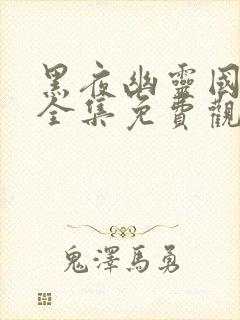 黑夜幽靈國
全集免費觀
鬼澤馬勇